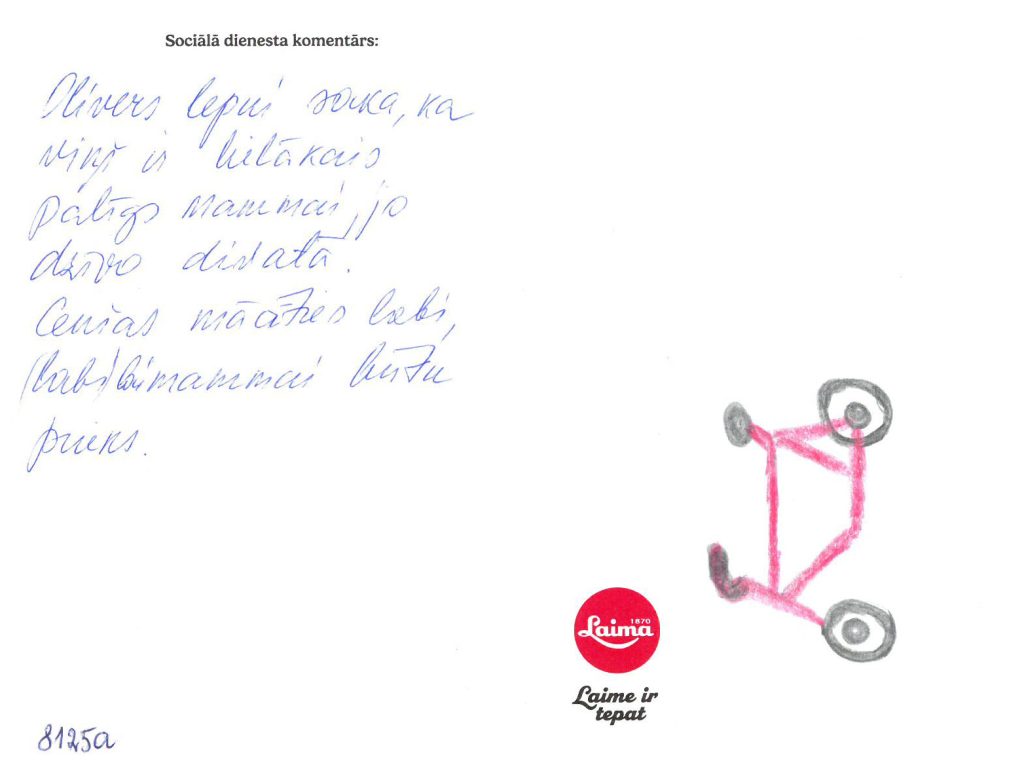 Sociālā dienesta komentārs:
Olivers lepni saka, ka
viņš ir lielākais
palīgs mammai, jo
dzīvo divatā.
Cenšas mācīties labi,
(labi) lai mammai būtu
prieks.
1870
Laima
Laime ir
tepat
8125a